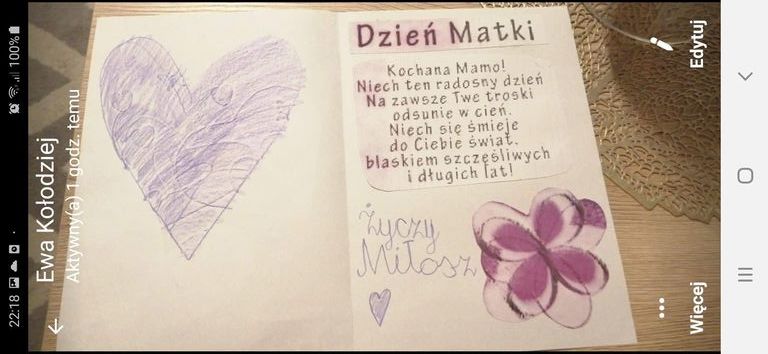 22:18
100%
Ewa Kołodziej
Aktywny(a) 1 godz. temu
Dzień Matki
Kochana Mamo!
Niech ten radosny dzień
Na zawsze Twe troski
odsunie w cień.
Niech się śmieje
do Ciebie świat.
blaskiem szczęśliwych
i długich lat!
Życzy
Miłosz
Edytuj
Więcej